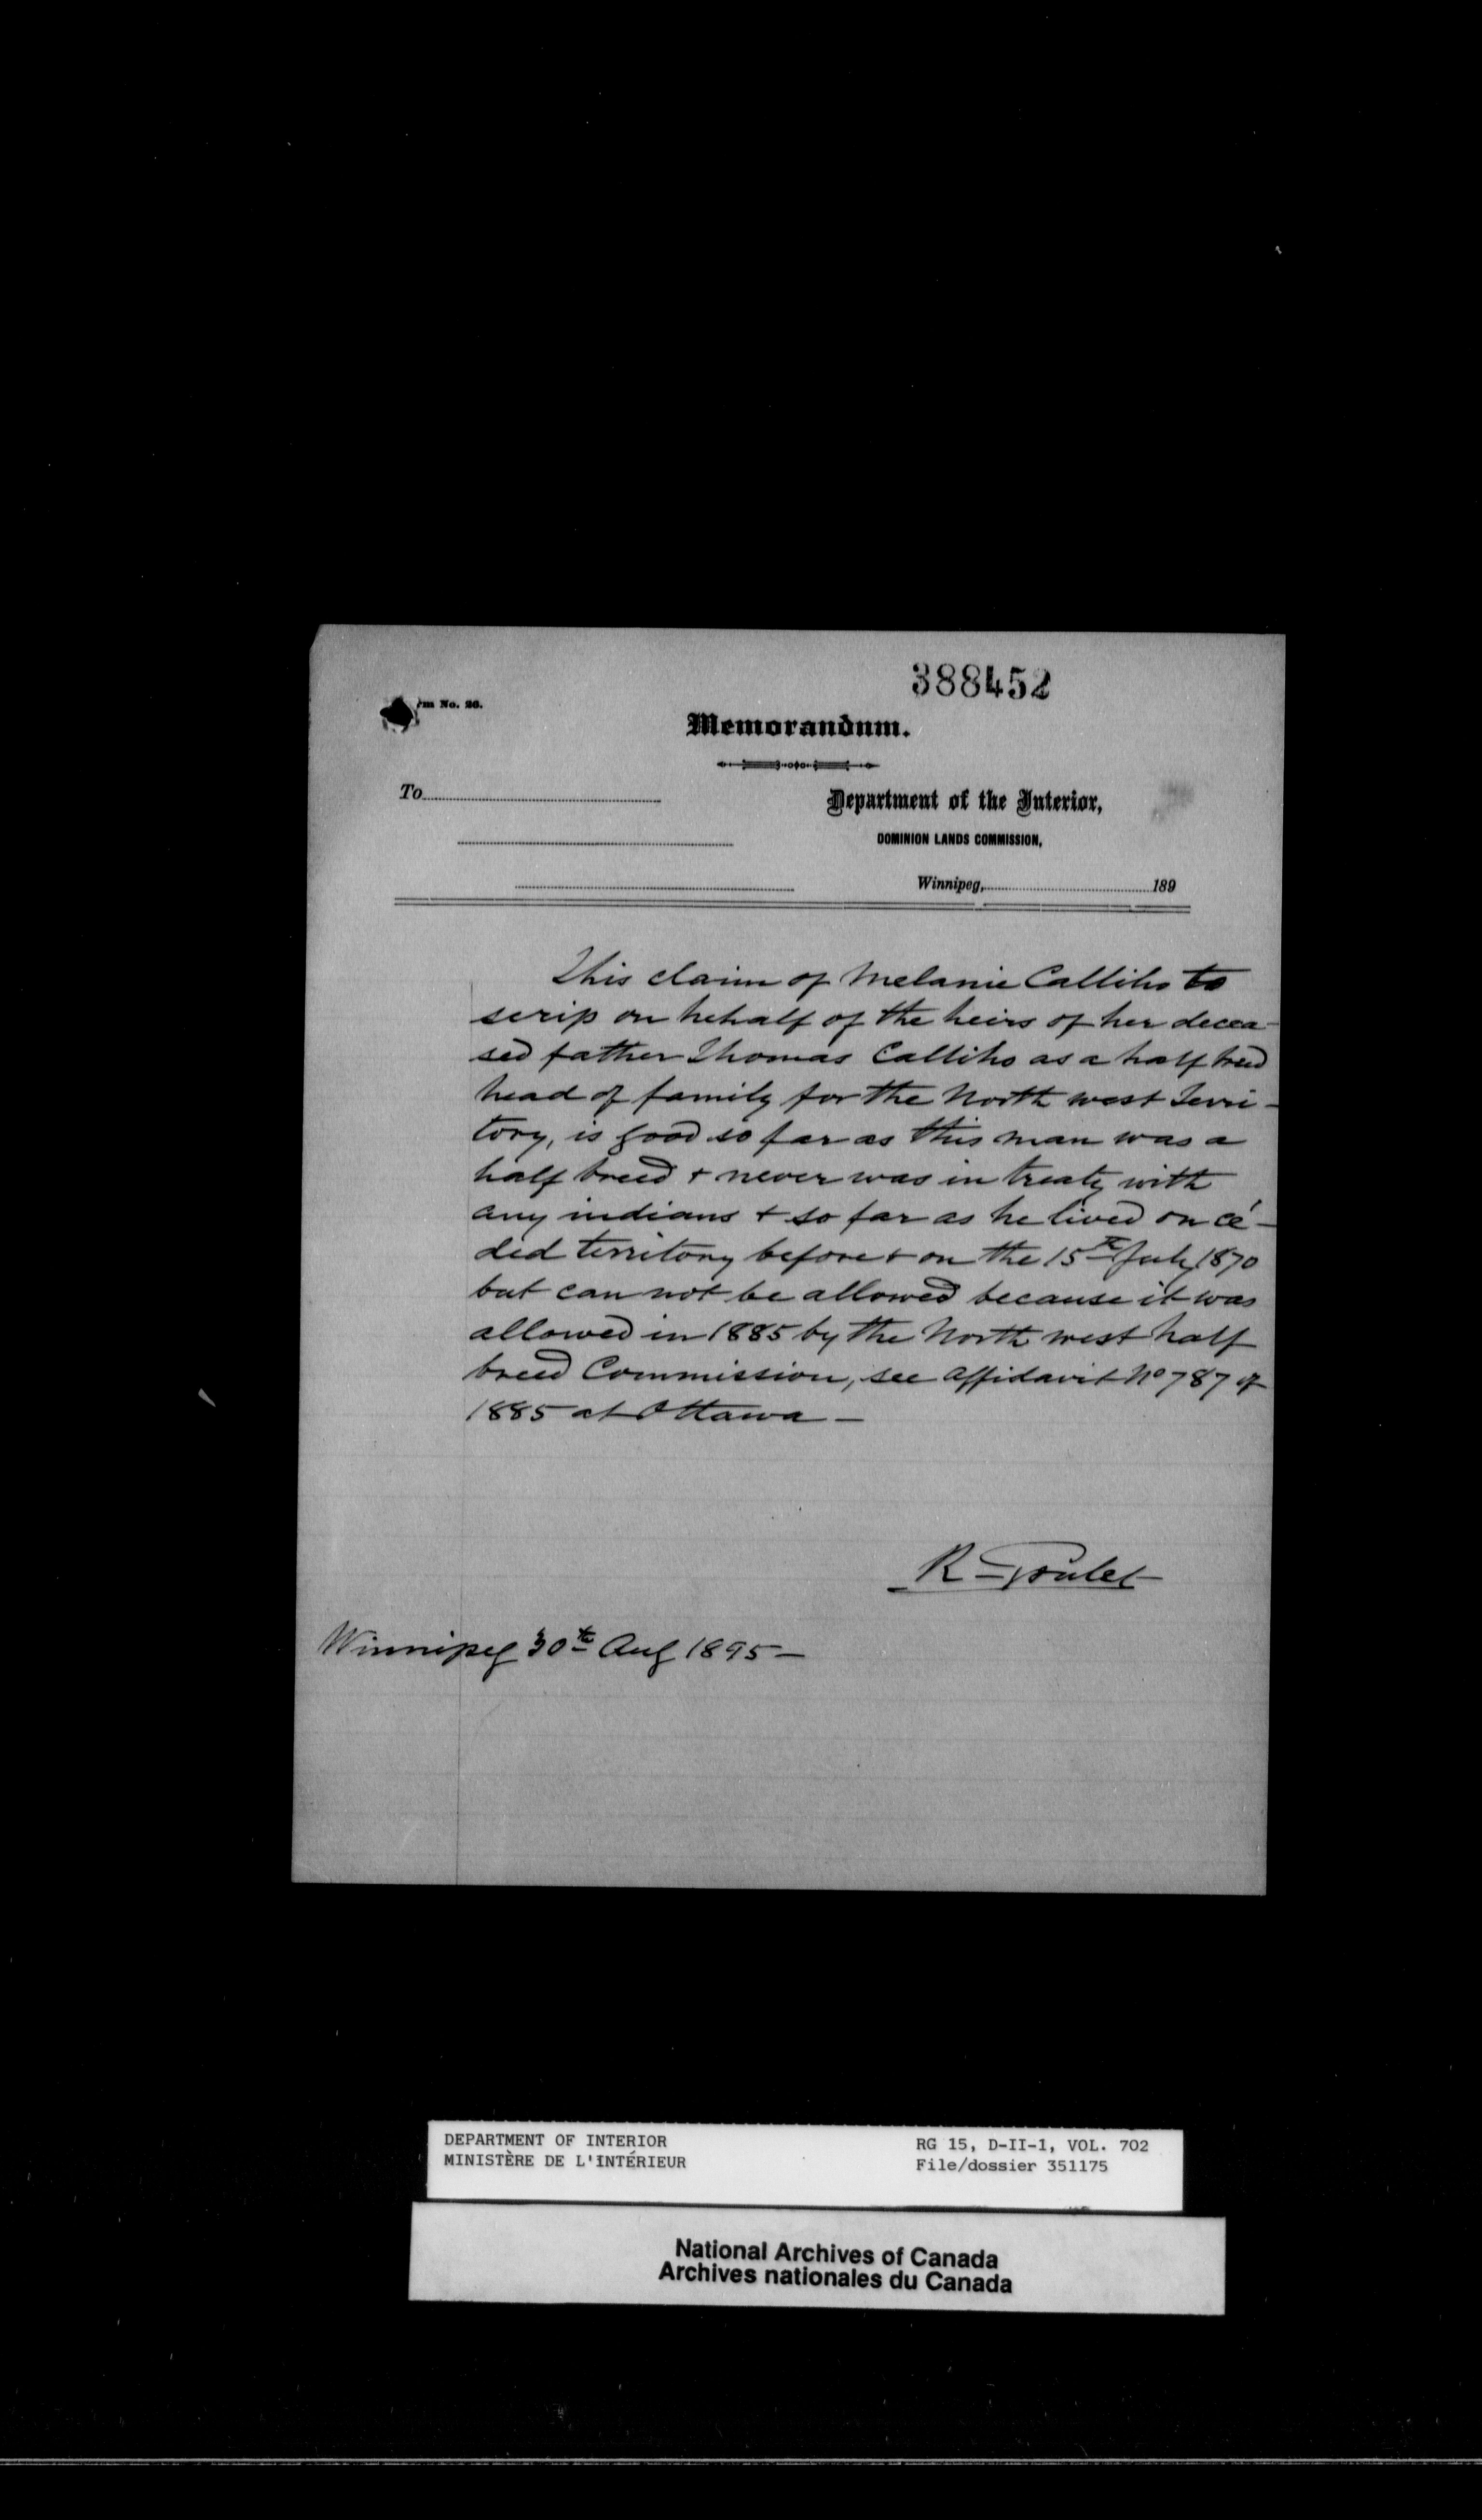 388452
rm No. 26.
Memorandum.
To
Department of the Interior,
DOMINION LANDS COMMISSION,
Winnipeg, 189
This claim of Melanie Calliho to
scrip on behalf of the heirs of her decea-
sed father Thomas Calliho as a half breed
head of family for the North west Terri-
tory, is good so far as this man was a
half breed + never was in treaty with
any indians + so far as he lived on cé-
ded territory before + on the 15th July 1870
but can not be allowed because it was
allowed in 1885 by the North west half
breed Commission, see affidavit No 787 of
1885 at Ottawa —
R Goulet
Winnipeg 30th Aug 1895 —
DEPARTMENT OF INTERIOR
MINISTÈRE DE L'INTÉRIEUR
RG 15, D-II-1, VOL. 702
File/dossier 351175
National Archives of Canada
Archives nationales du Canada